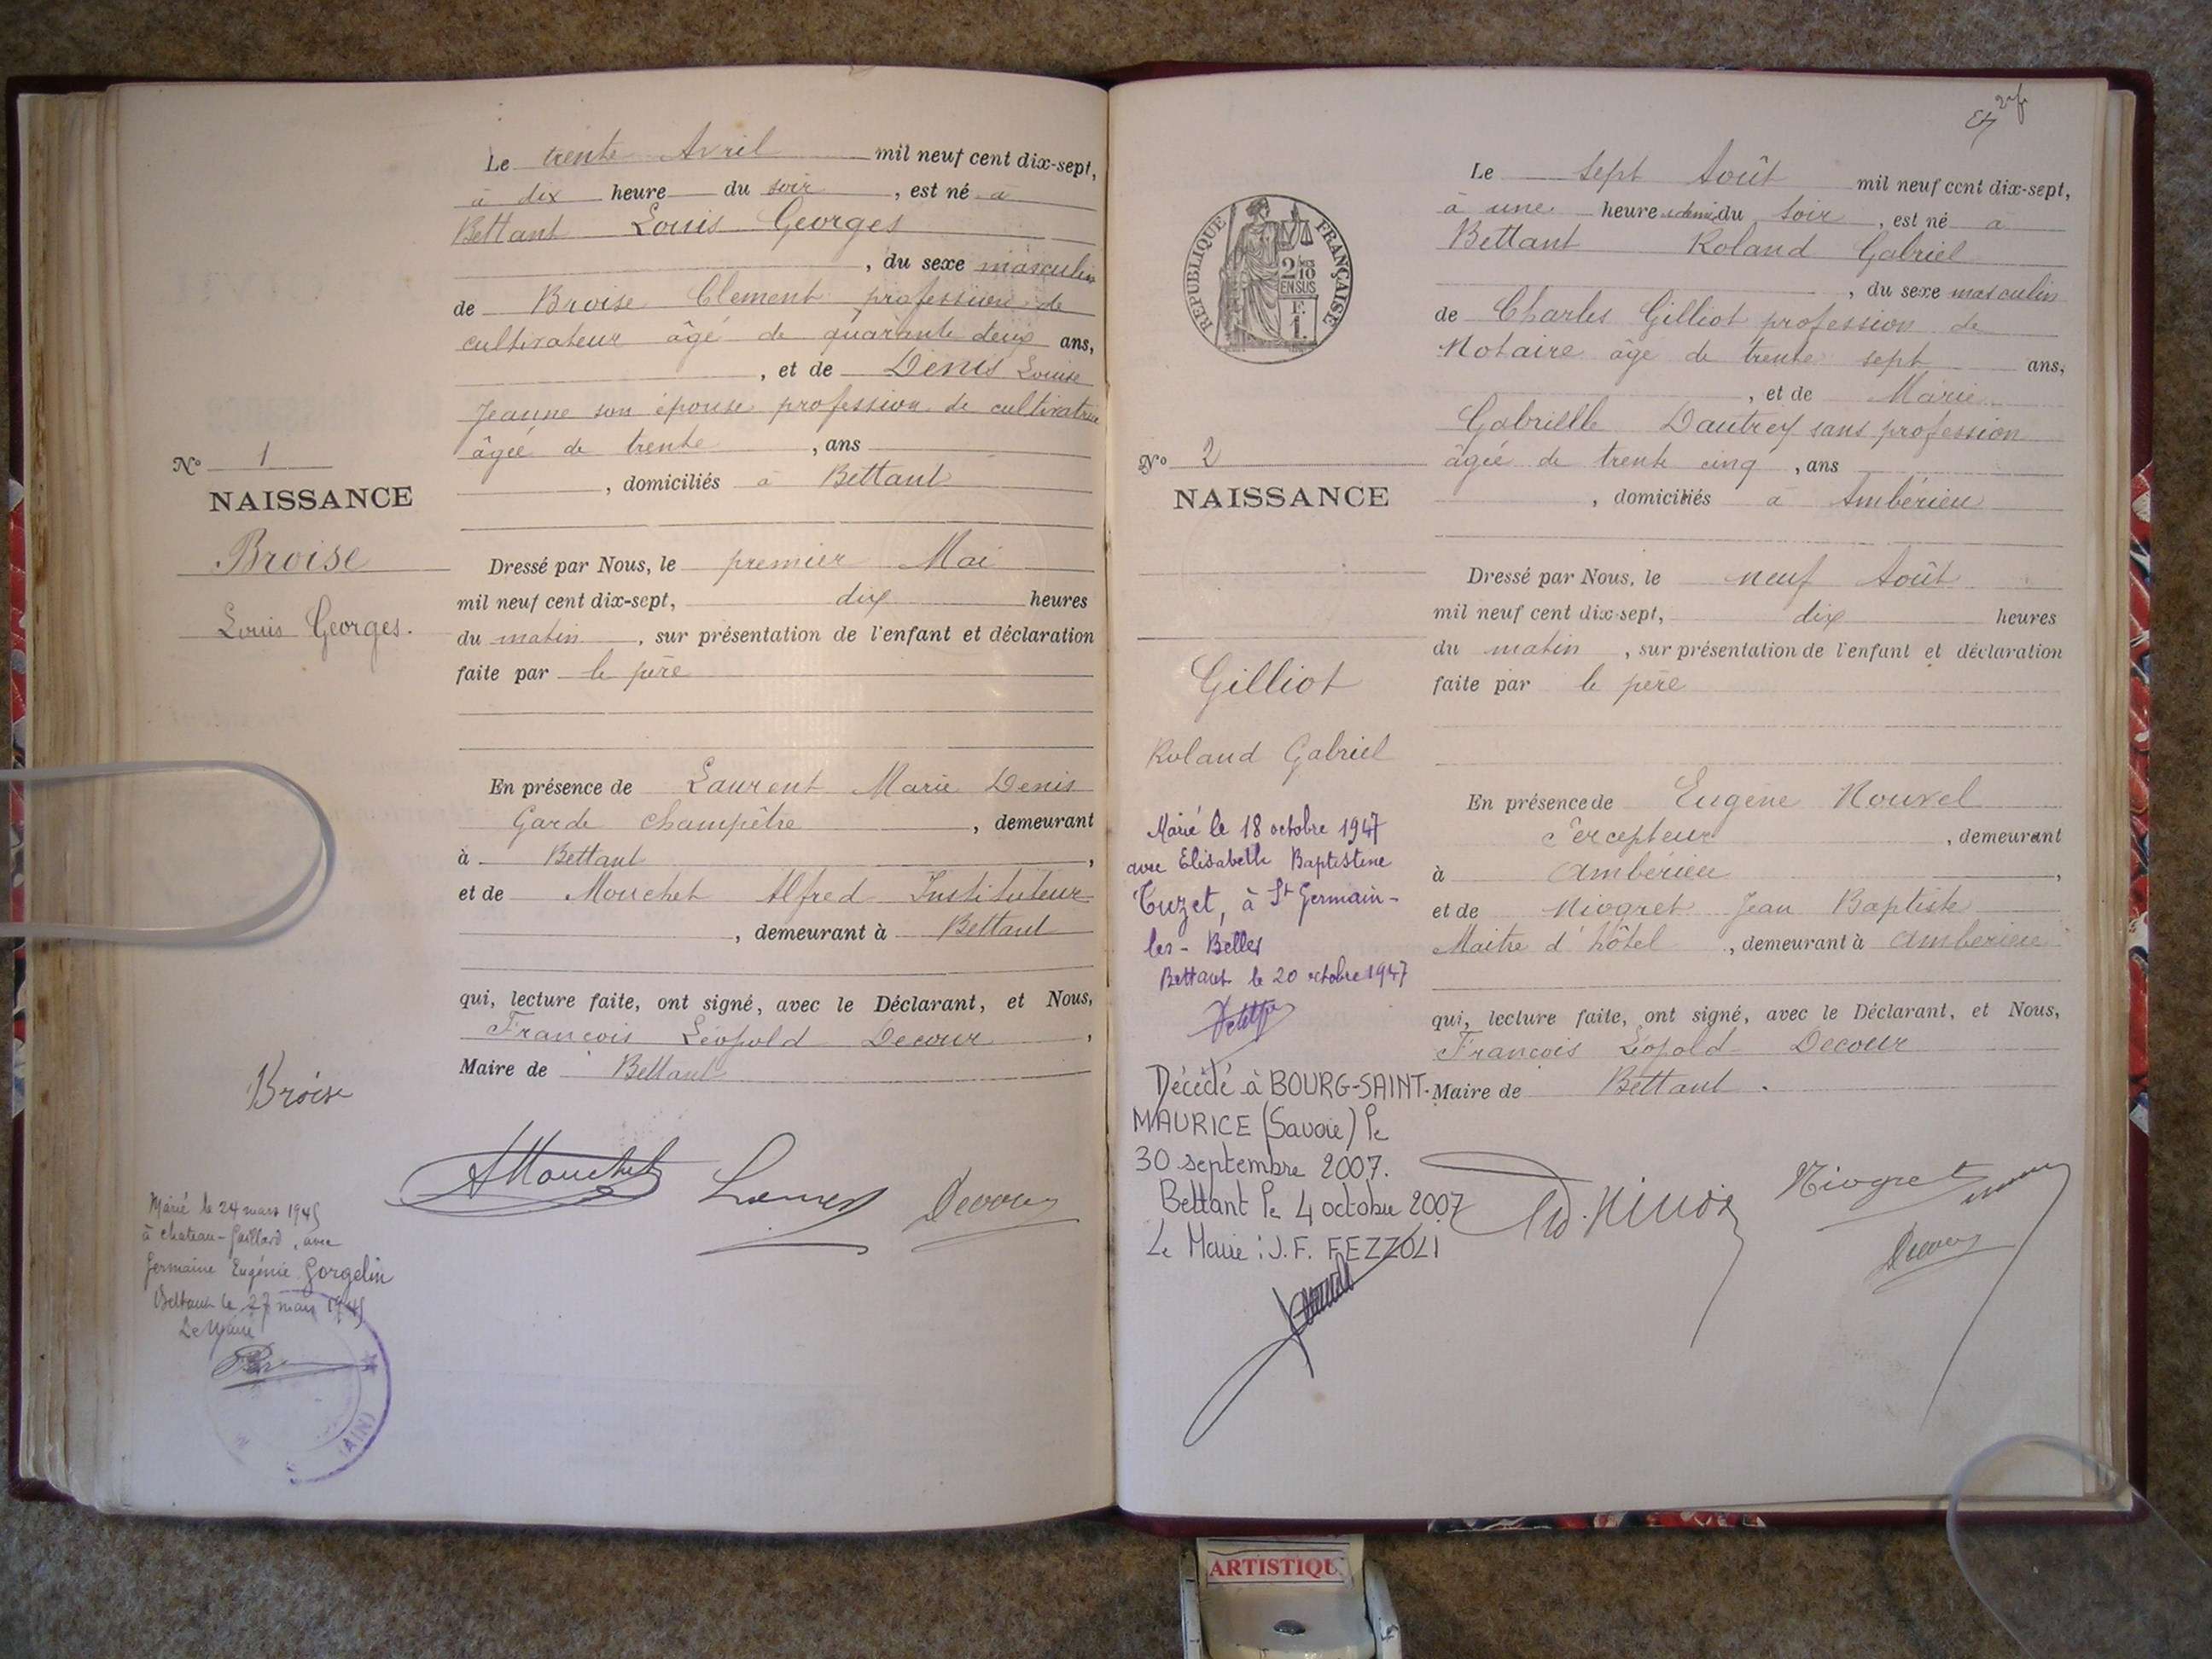 Le trente Avril mil neuf cent dix-sept,
à dix heure du soir, est né à
Bettant Louis Georges
, du sexe masculin
de Broise Clement profession de
cultivateur âgé de quarante deux ans,
, et de Denis Louise
Jeanne son épouse profession de cultivatrice
âgée de trente, ans
, domiciliés à Bettant
N° 1
NAISSANCE
Broise
Louis Georges.
Dressé par Nous, le premier Mai
mil neuf cent dix-sept, dix heures
du matin, sur présentation de l'enfant et déclaration
faite par le père
En présence de Laurent Marie Denis
Garde champêtre, demeurant
à Bettant,
et de Mouchet Alfred Instituteur
, demeurant à Bettant
qui, lecture faite, ont signé, avec le Déclarant, et Nous,
François Léopold Decour,
Maire de Bettant
Broise
AMouchet Decour
Marié le 24 mars 1945
à Chateau-Gaillard, avec
Germaine Eugénie Gorgelin
Bettant le 27 mars 1945
Le Maire
(AIN)
2
Le sept Août mil neuf cent dix-sept,
à une heure et demie du soir, est né à
Bettant Roland Gabriel
, du sexe masculin
de Charles Gilliot profession de
Notaire âgé de trente sept ans,
, et de Marie
Gabrielle Dautrey sans profession
âgée de trente cinq, ans
, domiciliés à Ambérieu
RÉPUBLIQUE FRANÇAISE
2/10
EN SUS
F.
1.
N° 2
NAISSANCE
Gilliot
Roland Gabriel
Dressé par Nous, le neuf Août
mil neuf cent dix-sept, dix heures
du matin, sur présentation de l'enfant et déclaration
faite par le père
En présence de Eugène Nouvel
Percepteur, demeurant
à Ambérieu,
et de Niogret Jean Baptiste
Maitre d'hôtel, demeurant à Ambérieu
qui, lecture faite, ont signé, avec le Déclarant, et Nous,
François Léopold Decour
Maire de Bettant.
Marié le 18 octobre 1947
avec Elisabeth Baptistine
Tuzet, à St Germain-
les-Belles
Bettant le 20 octobre 1947
Décédé à BOURG-SAINT-
MAURICE (Savoie) le
30 septembre 2007.
Bettant le 4 octobre 2007
Le Maire : J.F. FEZZOLI
Niogret
Decour
ARTISTIQU